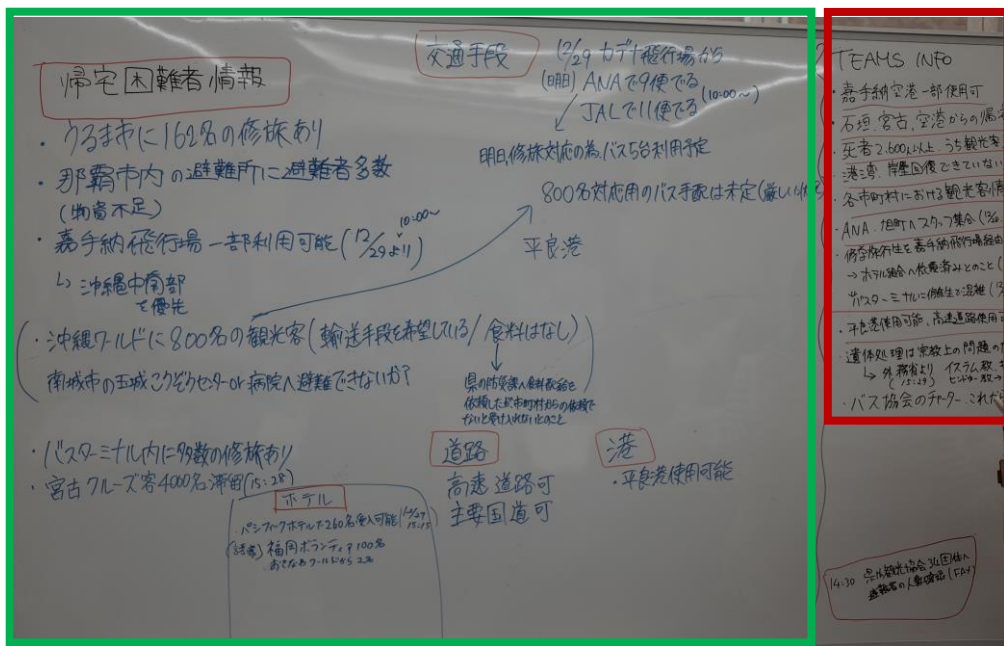 帰宅困難者情報
・うるま市に162名の修旅あり
・那覇市内の避難所に避難者多数
(物資不足)
・嘉手納飛行場一部利用可能(12/29より) 10:00〜
↳沖縄中南部
を優先
・沖縄ワールドに800名の観光客(輸送手段を希望している/食料はなし)
南城市の玉城こうぞうセンターor病院へ避難できないか?
県の防災課へ食料配給を
依頼したが市町村からの依頼で
ないと受け入れないとのこと
・バスターミナル内に多数の修旅あり
・宮古クルーズ客4000名滞留(15:28)
ホテル
・パシフィックホテルで260名受入可能(12/29
15:15
福岡ボランティア100名
交通手段
12/29 カデナ飛行場から
(明日) ANAで9便でる
JALで11便でる(10:00〜)
明日修旅対応の為、バス5台利用予定
800名対応用のバス手配は未定
平良港
道路
高速道路可
主要国道可
港
・平良港使用可能
TEAMS INFO
・嘉手納空港一部使用可
・石垣、宮古、空港からの帰
・死者2,600以上、うち観光客
・港湾、岸壁回復できていない
・各市町村における観光客情
・ANA、旭町へスタッフ集合
・修学旅行生を嘉手納飛行場経由
→ホテル組合へ依頼済みとのこと
バスターミナルに修旅生で混雑
・平良港使用可能、高速道路使用
・遺体処理は宗教上の問題
↳外務省より イスラム教、
(15:29)
・バス協会のチャーター これだ
14:30 県内観光協会34団体へ
避難者の人数確認(FAX)